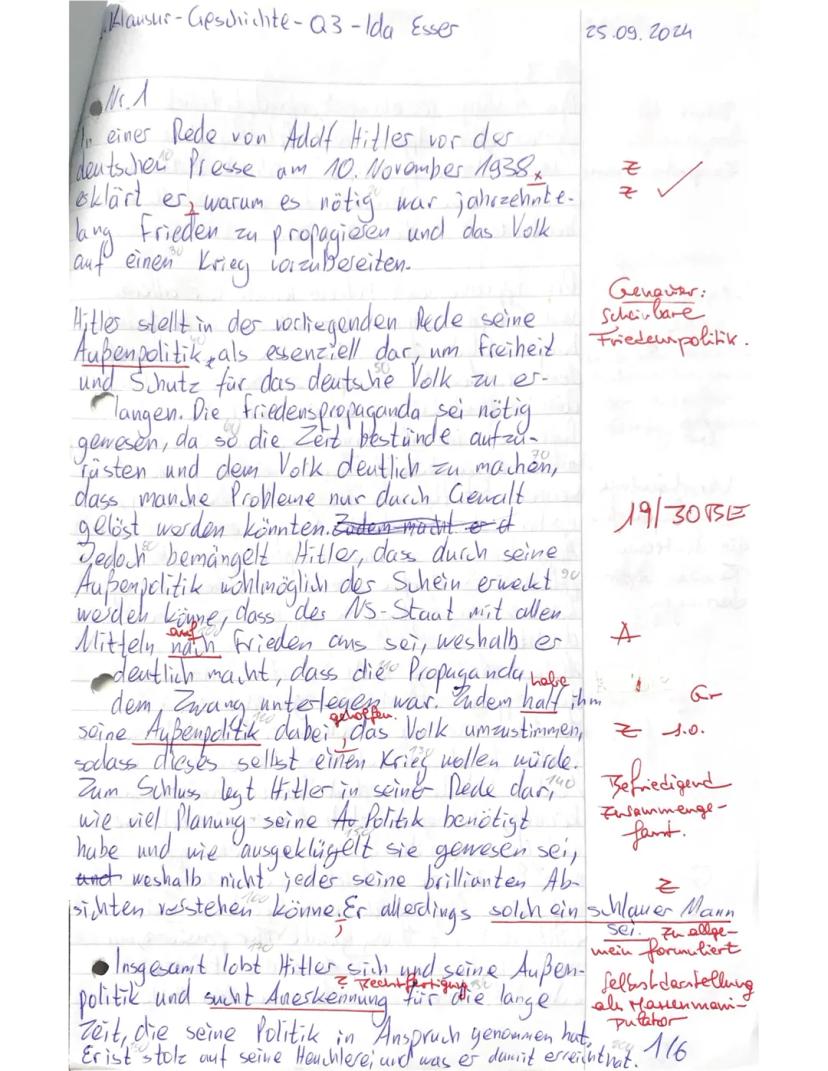 Klausur-Geschichte-Q3-Ida Esser
25.09.2024
Nr. 1
In einer Rede von Adolf Hitler vor der
deutschen Presse am 10. November 1938
erklärt er, warum es nötig war jahrzehnte-
lang Frieden zu propagieren und das Volk
auf einen Krieg vorzubereiten.
Z
Z ✓
Genauer:
scheinbare
Friedenspolitik.
Hitler stellt in der vorliegenden Rede seine
Außenpolitik, als essenziell dar, um Freiheit
und Schutz für das deutsche Volk zu er-
langen. Die Friedenspropaganda sei nötig
gewesen, da so die Zeit bestünde aufzu-
rüsten und dem Volk deutlich zu machen,
dass manche Probleme nur durch Gewalt
gelöst werden könnten. Zudem macht er d
19/30 BE
Jedoch bemängelt Hitler, dass durch seine
Außenpolitik wohlmöglich der Schein erweckt
werden könne, dass der NS-Staat mit allen
auf
Mitteln nach Frieden aus sei, weshalb er
A
deutlich macht, dass die Propaganda
habe
dem Zwang unterlegen war. Zudem half ihm
Gr
geholfen.
seine Außenpolitik dabei, das Volk umzustimmen,
Z s.o.
sodass dieses selbst einen Krieg wollen würde.
Zum Schluss legt Hitler in seiner Rede dar,
wie viel Planung seine Au Politik benötigt
habe und wie ausgeklügelt sie gewesen sei,
und weshalb nicht jeder seine brillianten Ab-
sichten verstehen könne. Er allerdings solch ein schlauer Mann
sei.
Befriedigend
zusammenge-
fasst.
Z
zu allge-
mein formuliert
Insgesamt lobt Hitler sich und seine Außen-
? Rechtfertigung
politik und sucht Anerkennung für die lange
Zeit, die seine Politik in Anspruch genommen hat.
Er ist stolz auf seine Heuchlerei und was er damit erreicht hat.
Selbstdarstellung
als Massenmani-
pulator
1/6